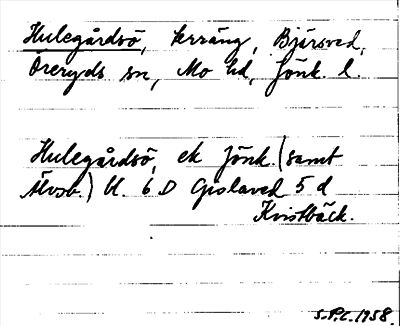 Hulegårdsö, terräng, Bjärsved,
Öreryds sn, Mo hd, Jönk. l.
Hulegårdsö, ek Jönk. (samt
Älvsb.) bl. 6 D Gislaved 5 d
Kvistbäck.
S.P.C. 1958.